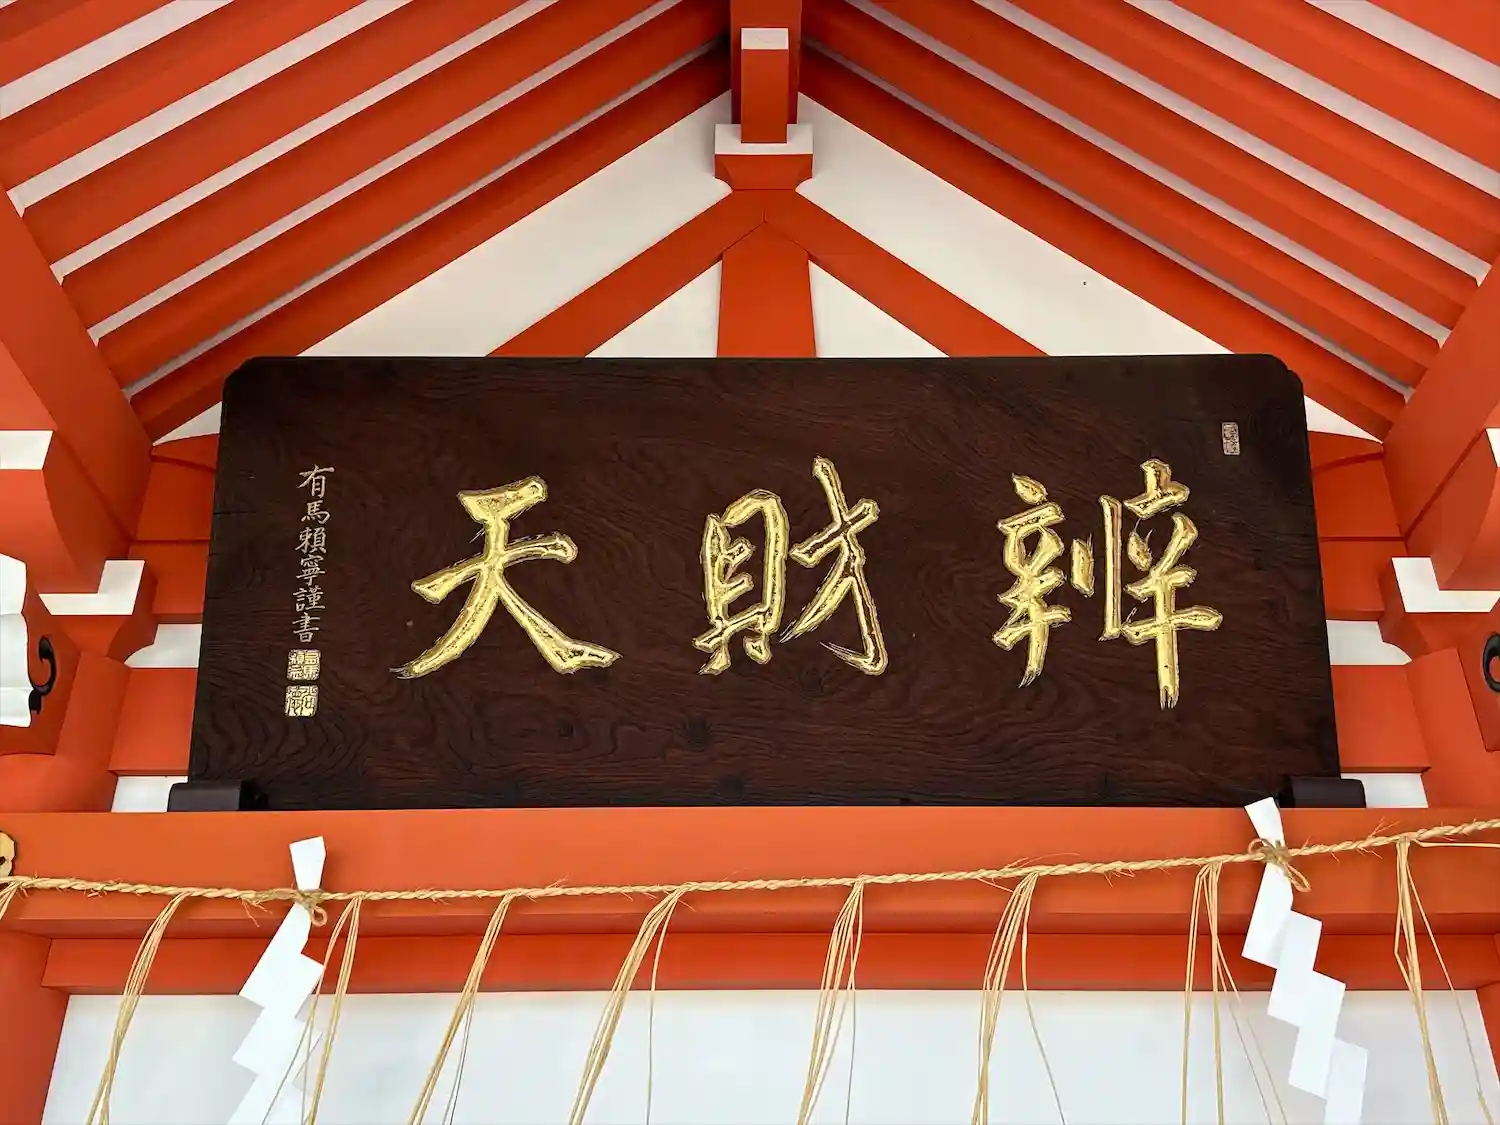 辨財天
有馬頼寧謹書